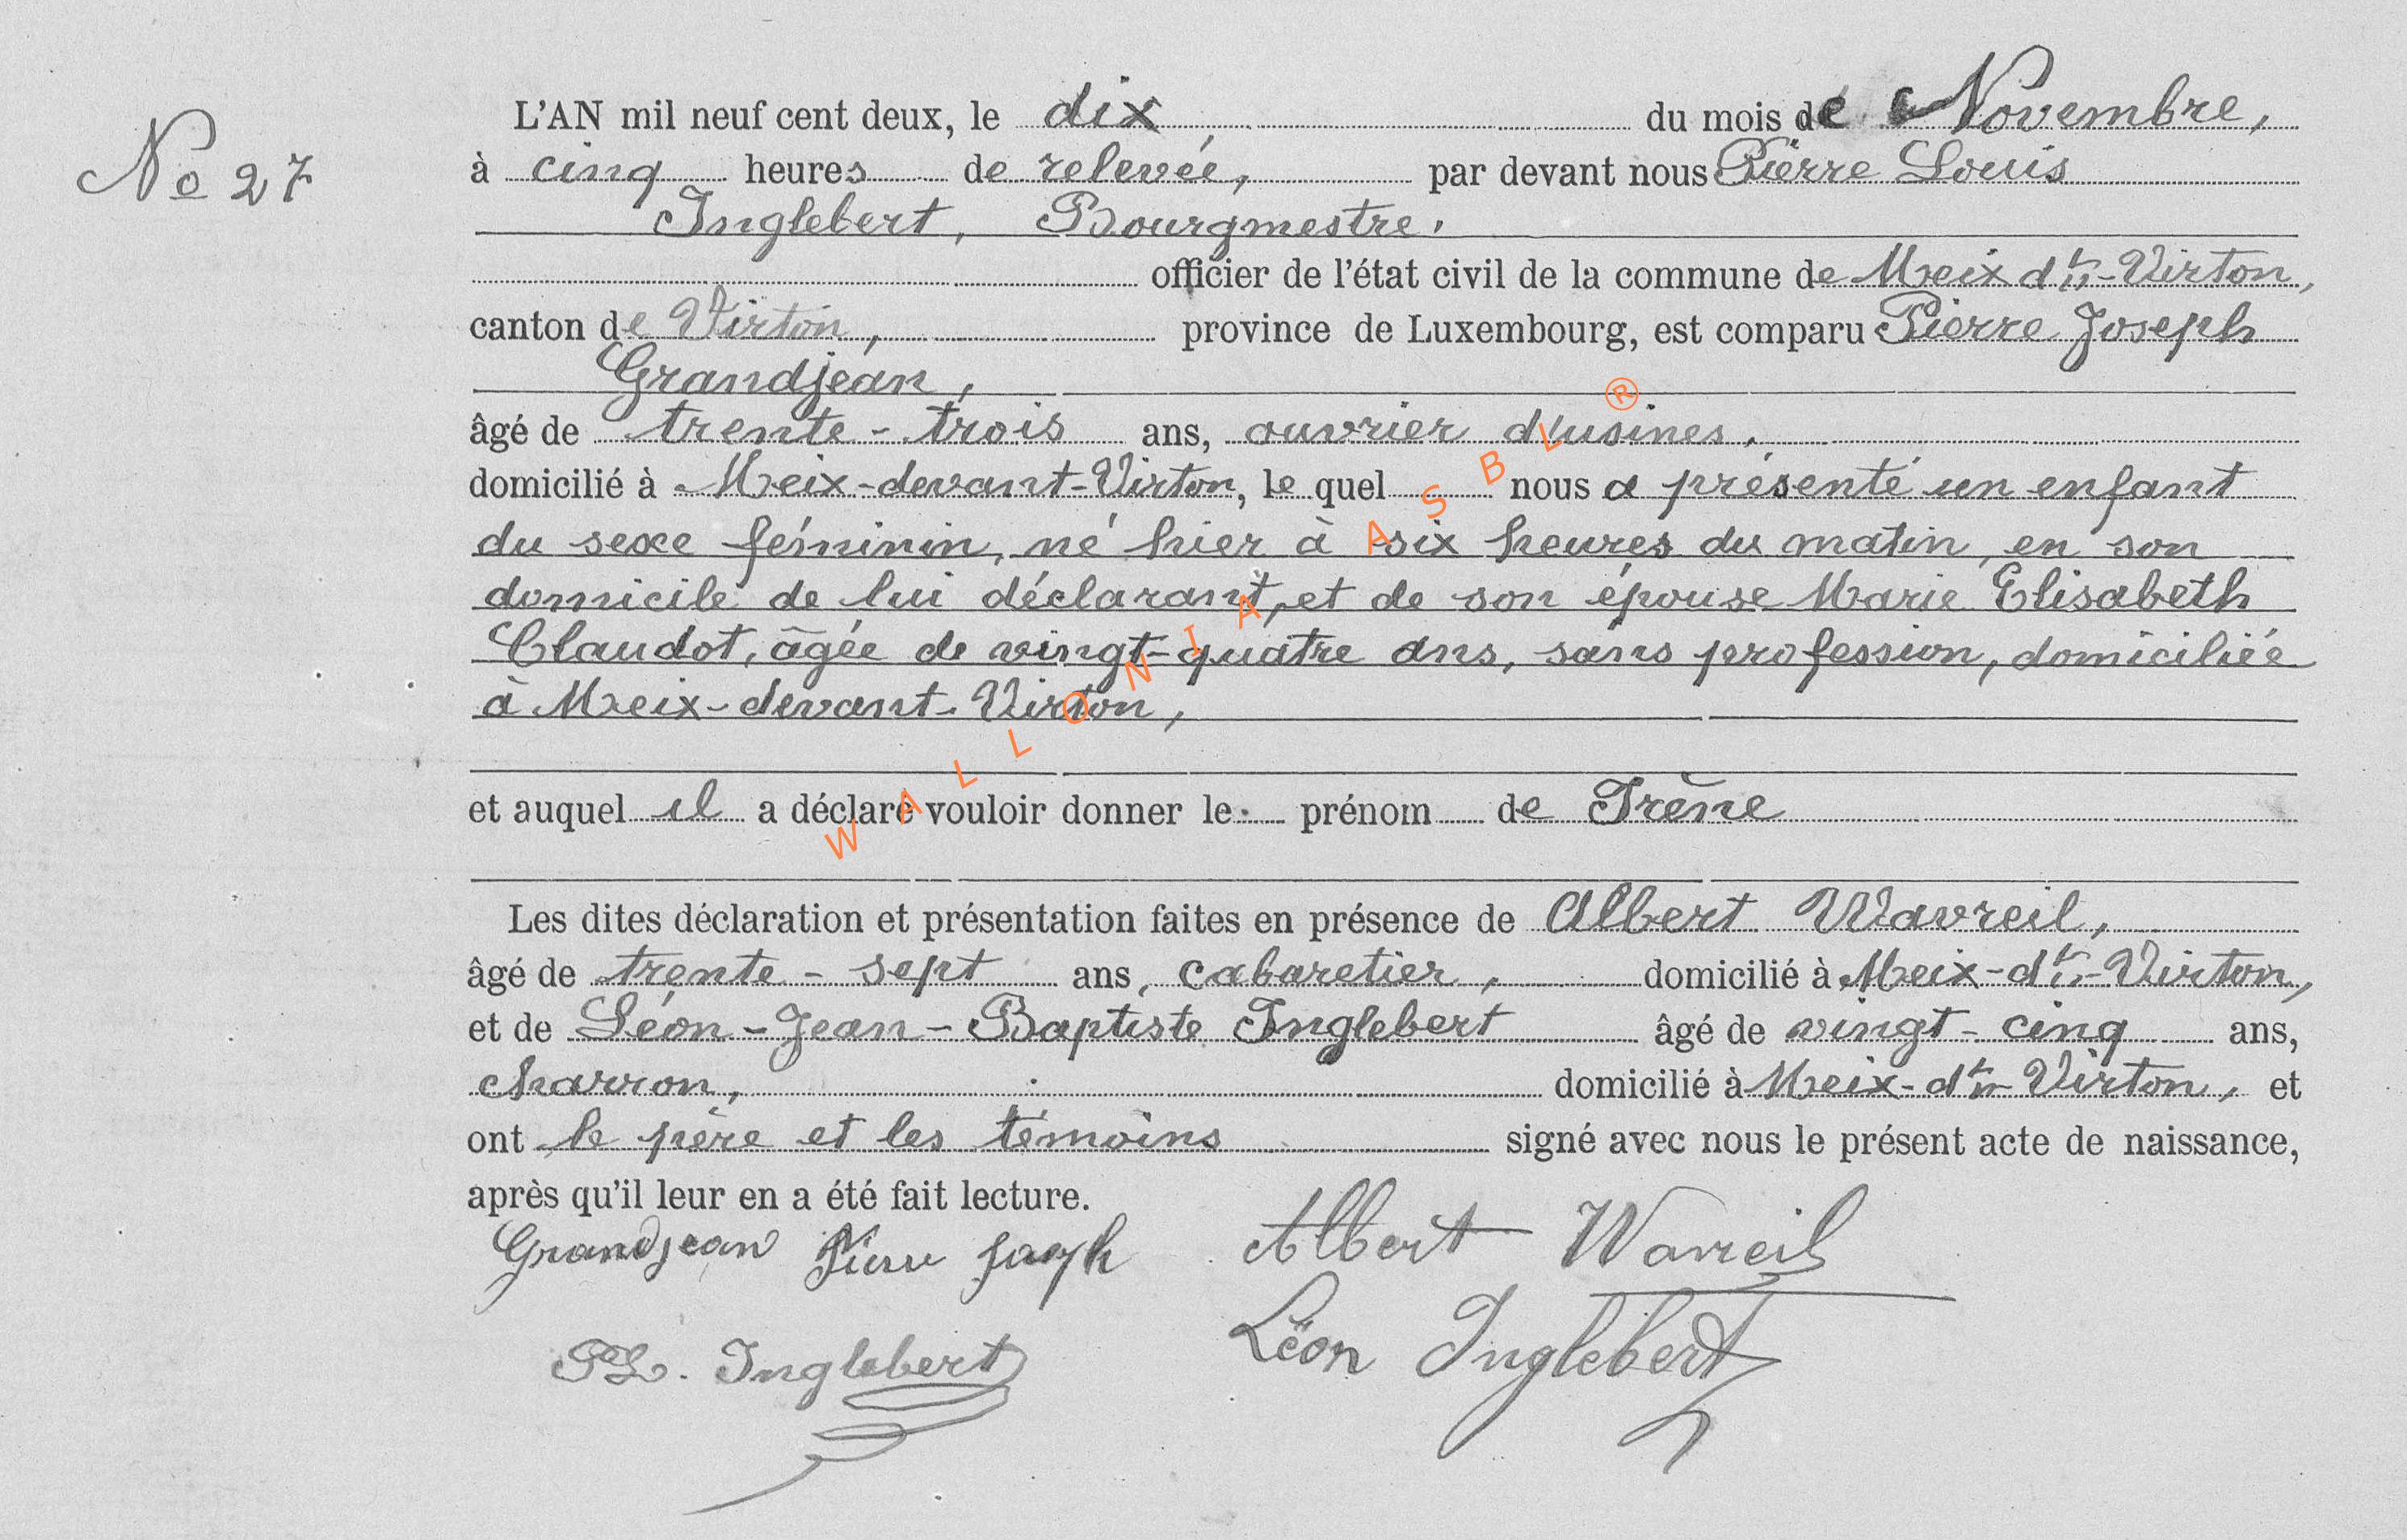 No 27
L'AN mil neuf cent deux, le dix du mois de Novembre,
à cinq heures de relevée, par devant nous Pierre Louis
Inglebert, Bourgmestre.
officier de l'état civil de la commune de Meix dt-Virton,
canton de Virton, province de Luxembourg, est comparu Pierre Joseph
Grandjean,
âgé de trente-trois ans, ouvrier d'usines.
domicilié à Meix-devant-Virton, le quel nous a présenté un enfant
du sexe féminin, né hier à six heures du matin, en son
domicile de lui déclarant, et de son épouse Marie Elisabeth
Claudot, âgée de vingt-quatre ans, sans profession, domiciliée
à Meix-devant-Virton,
et auquel il a déclaré vouloir donner le prénom de Irène
Les dites déclaration et présentation faites en présence de Albert Wavreil,
âgé de trente-sept ans, cabaretier, domicilié à Meix-dt-Virton,
et de Léon-Jean-Baptiste Inglebert âgé de vingt-cinq ans,
charron, domicilié à Meix-dt-Virton, et
ont le père et les témoins signé avec nous le présent acte de naissance,
après qu'il leur en a été fait lecture.
Grandjean Pierre Joseph Albert Wavreil
PL. Inglebert Léon Inglebert
WALLONIA ASBL ®